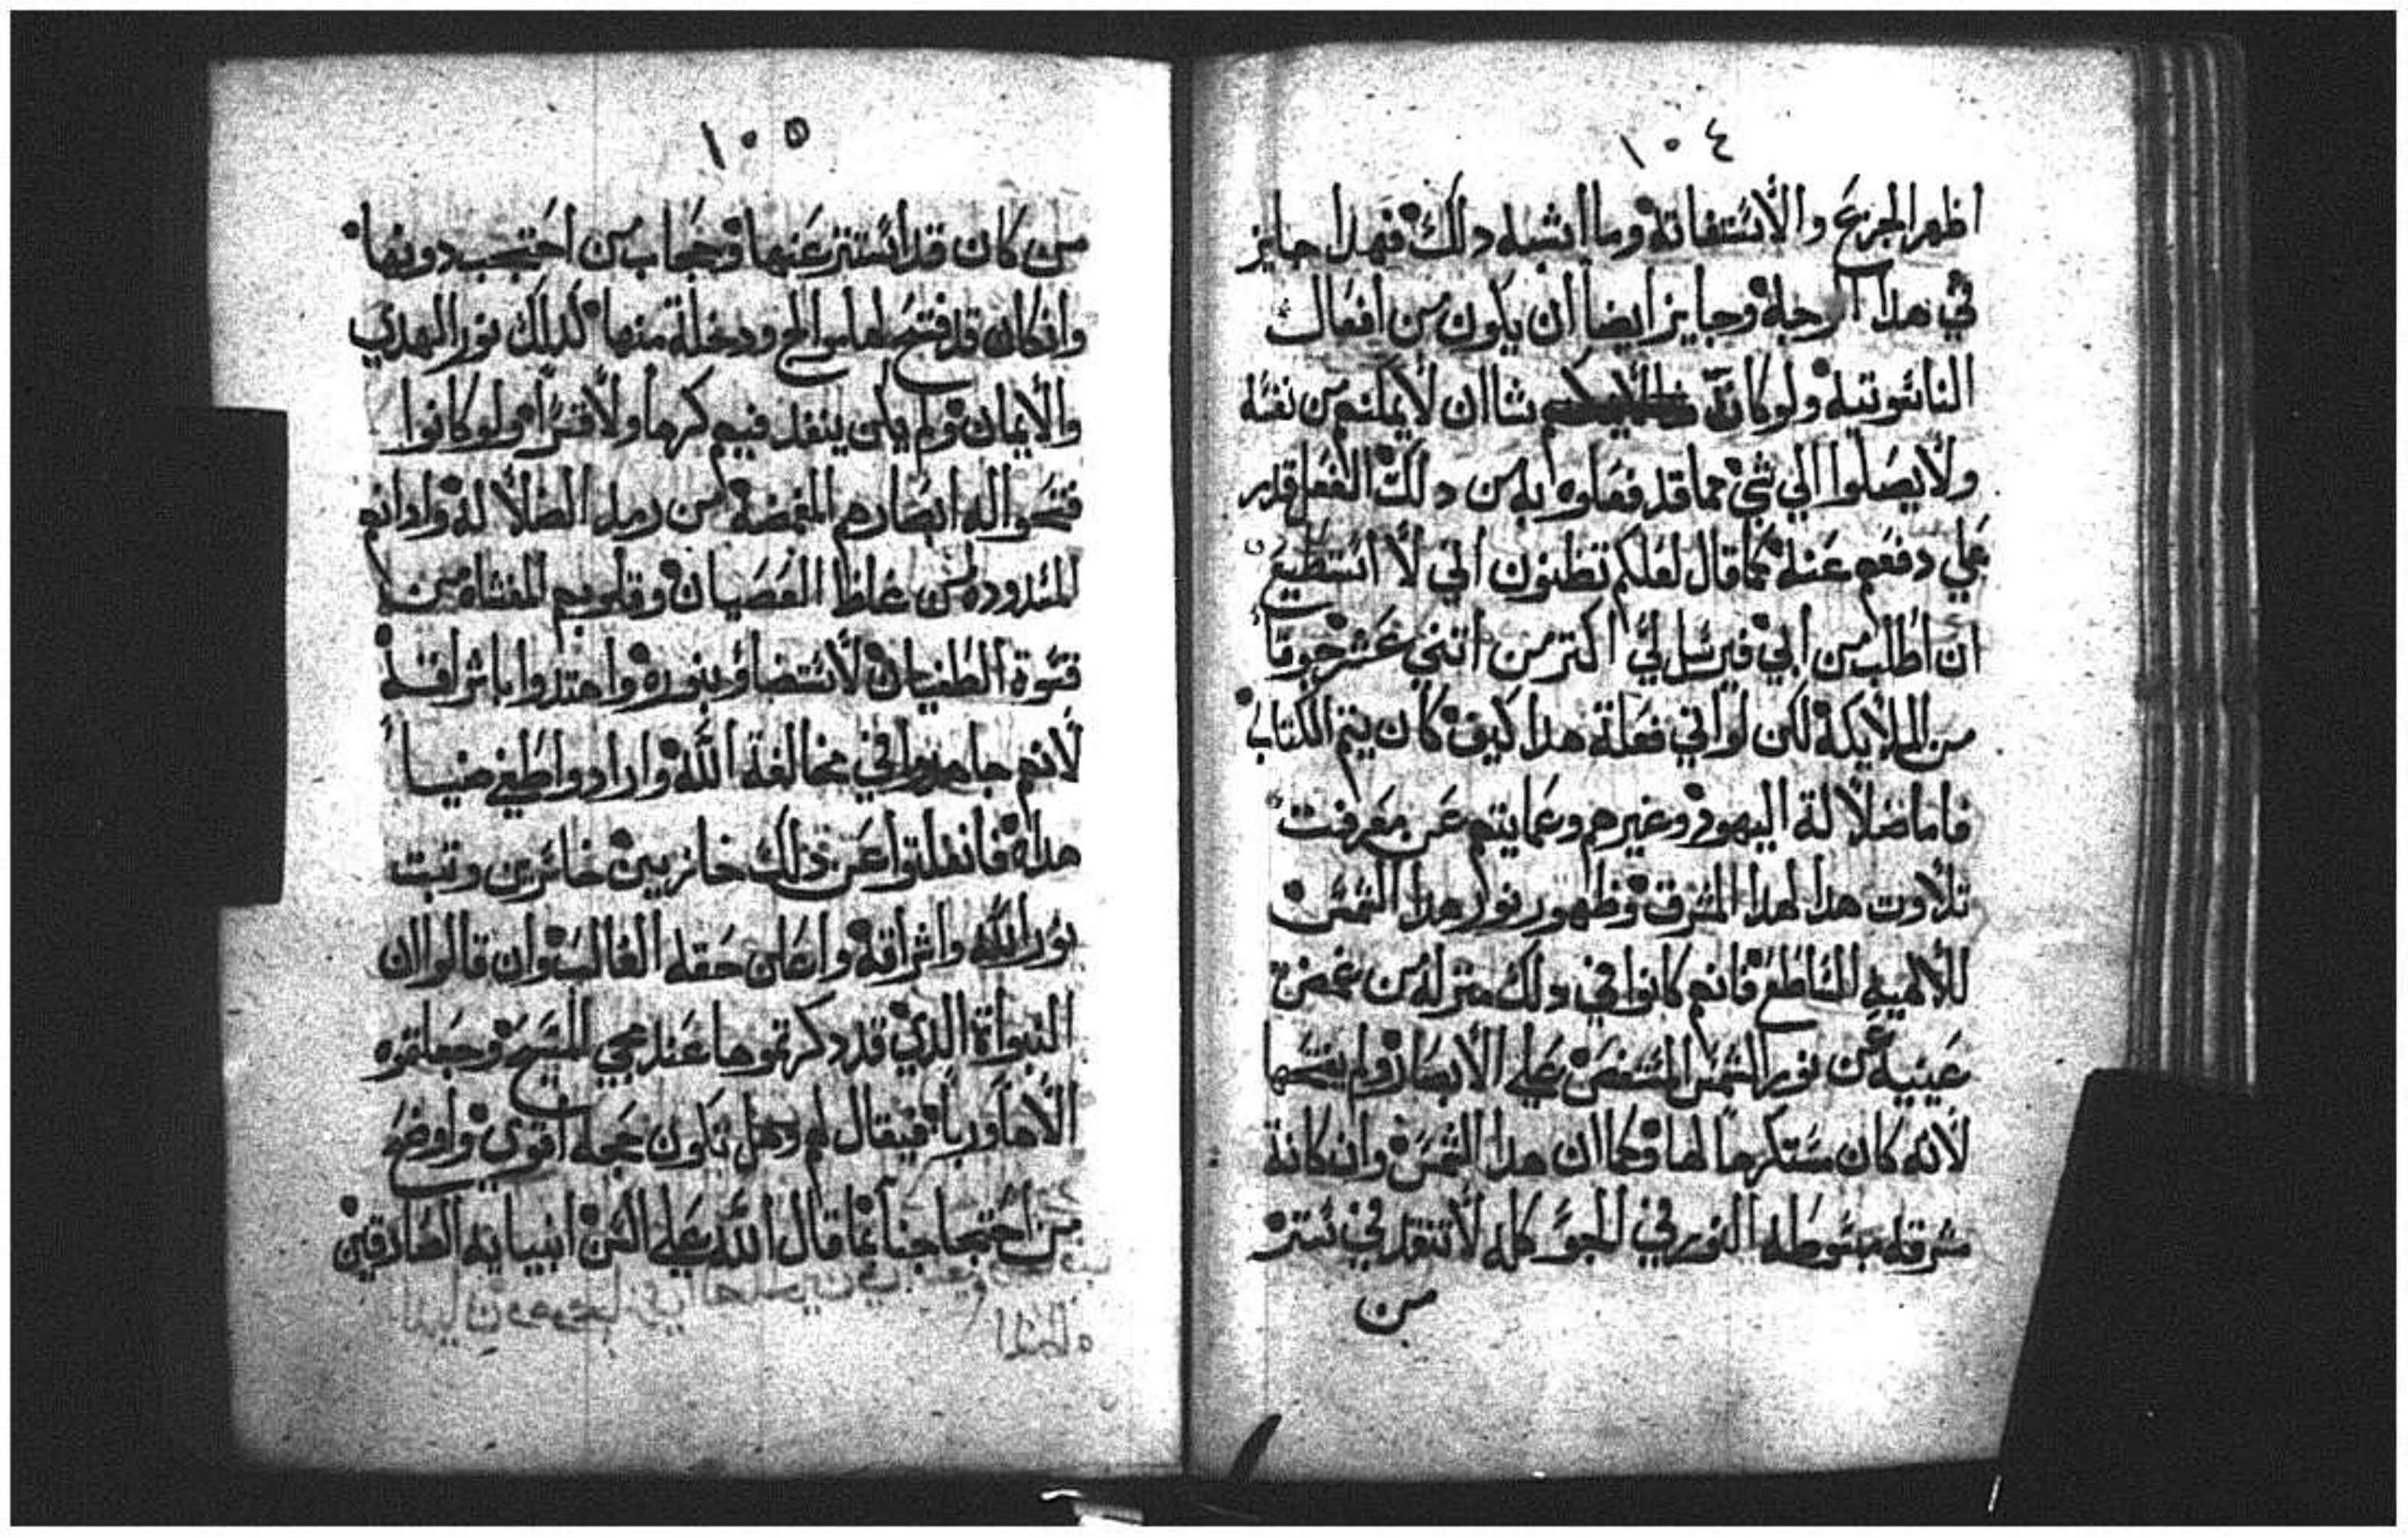 ١٠٤
اظهر الجزع والاستغاثة وما اشبه دلك فهدا جايز
في هدا الوجه وجايز ايضا ان يكون من افعال
الناسوتيه ولو كان شاان لا يمكنهم من نفسه
ولا يصلوا الي شي مما قد فعلوه به من دلك الفعل قدر
علي دفعهم عنه كما قال لعلكم تظنون اني لا استطيع
ان اطلب من ابي فيرسل لي اكتر من اتني عشر جوقا
من الملايكة لكن لو اني فعلة هدا كيف كان يتم الكتاب
فاما ضلالة اليهود وغيرهم وعمايتهم عن معرفت
تلاوت هدا لهدا المشرق وظهور نور هدا الشمس
الالهية الساطع فانهم كانوا في دلك منزلة من غمض
عينيه عن نور الشمس علي الابصار ولم يفتحها
لانه كان مستكرها لها وكما ان هدا الشمس وان كانة
مشرقه مبسوطه النور في الجو كله لا تنفد في ستر
من
١٠٥
من كان قد استتر عنها وحجاب من احتجب دونها
وان كان قد فتح لها ودخلة منها كدلك نور الهدي
والايمان ولم يكن ينفد فيهم كرها ولا قسرا ولو كانوا
فتحوا له ابصارهم المغمضة من رمد الضلالة وادانهم
المسدوده من غلظ العصيان وقلوبهم المغشاه من
قسوة الطغيان لاستضاو بنوره واهتدوا باشراقه
لانهم جاهدوا في مخالفة الله وارادوا طفي ضيا
هداه فانفلتوا عن ذلك خازيين خاسرين وتبت
نور الله واشراقه واعلى حقه الغالب وان قالوا ان
النبواة الدي قد دكرتموها عند مجي المسيح وجعلتموه
الاها وربا فيقال لهم وهل تكون حجه اقوي واوضح
من احتجاجنا بما قال الله علي السن انبيايه الصادقين